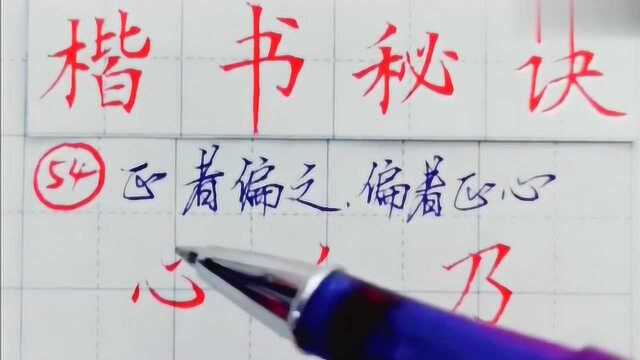 楷书秘诀
54 正者偏之,偏者正心
心 乃